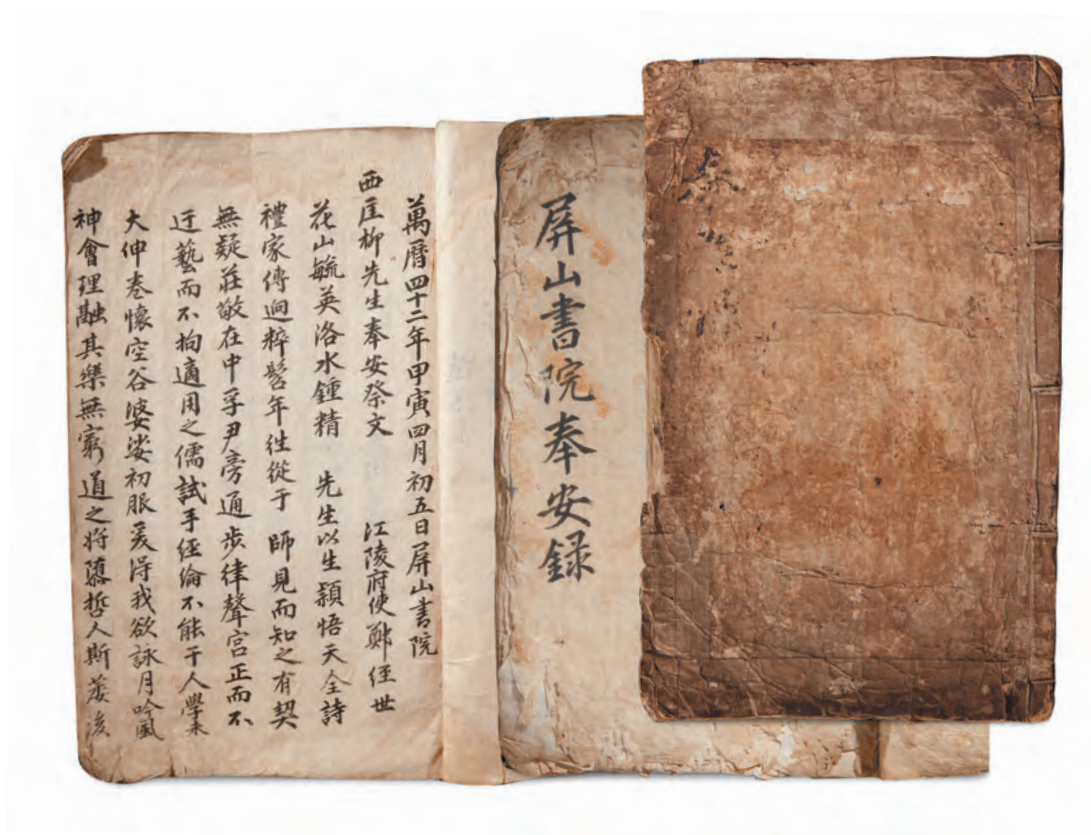 屏山書院奉安録
萬曆四十二年甲寅四月初五日屏山書院
西厓柳先生奉安祭文 江陵府使鄭經世
花山毓英洛水鍾精 先生以生穎悟天全詩
禮家傳逈粹髫年徃從于 師見而知之有契
無疑莊敬在中孚尹旁通步律聲宮正而不
迂藝而不拘適用之儒試手經綸不能于人學未
大伸卷懷空谷婆娑初服爰得我欲詠月吟風
神會理融其樂無窮道之將墜哲人斯萎後